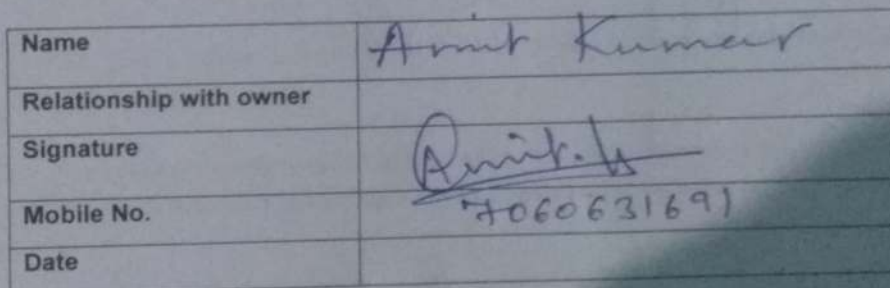 Name Amit Kumar
Relationship with owner
Signature Amit.k
Mobile No. 7060631691
Date